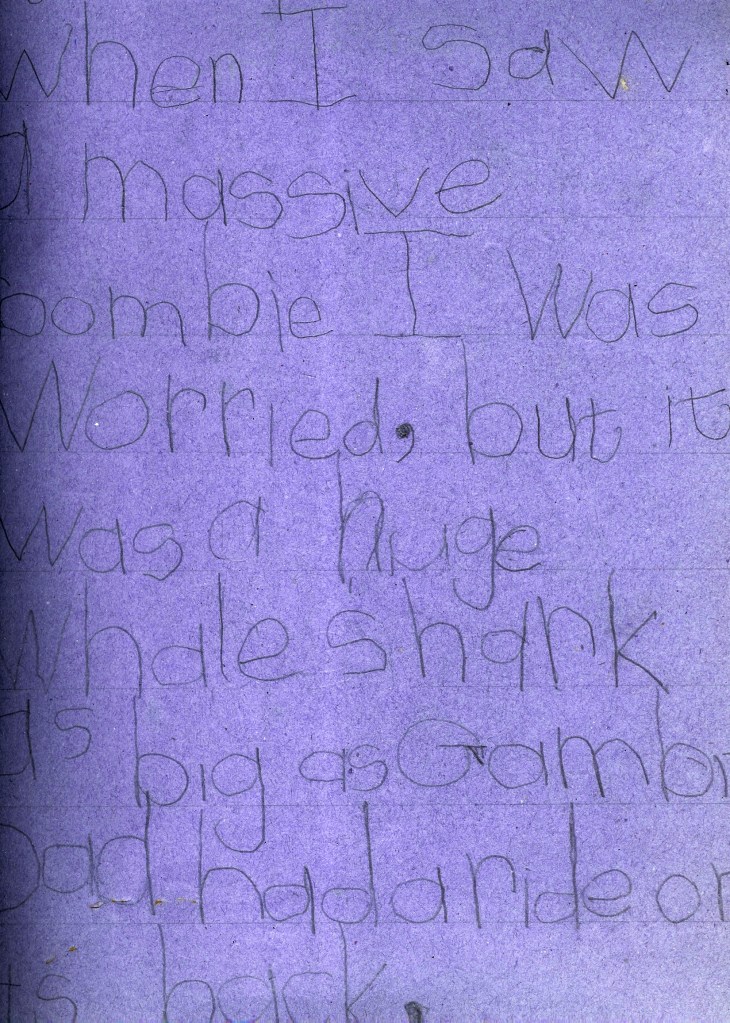 when I saw
a massive
bombie I was
Worried, but it
was a huge
Whale shark
as big as
Dad had a ride on
its back.